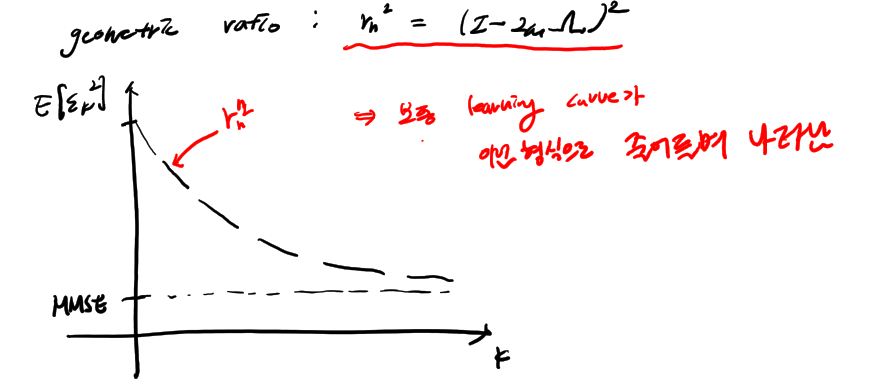 geometric ratio : rₙ² = (I - 2μΛ)²
E[εₖ²]
rₙ²
⇒ 보통 learning curve가
이런 형식으로 줄어들며 나타난
MMSE
k